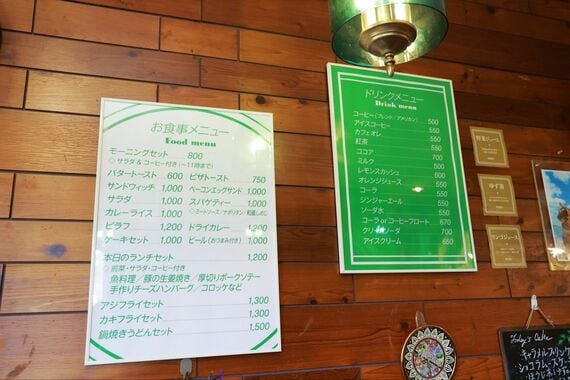 お食事メニュー
Food menu
モーニングセット 800
◇サラダ&コーヒー付き(~11時まで)
バタートースト 600 ピザトースト 750
サンドウィッチ 1,000 ベーコンエッグサンド 1,000
サラダ 1,000 スパゲティー 1,000
カレーライス 1,000 ◇ミートソース・ナポリタン・和風しめじ
ピラフ 1,200 ドライカレー 1,200
ケーキセット 1,000 ビール(おつまみ付き) 1,000
本日のランチセット 1,200
◇前菜・サラダ・コーヒー付き
魚料理/豚の生姜焼き/厚切りポークソテー
手作りチーズハンバーグ/コロッケなど
アジフライセット 1,300
カキフライセット 1,300
鍋焼きうどんセット 1,500
ドリンクメニュー
Drink menu
コーヒー(ブレンド/アメリカン) 500
アイスコーヒー 550
カフェオレ 550
紅茶 550
ココア 550
ミルク 500
レモンスカッシュ 600
オレンジジュース 550
コーラ 550
ジンジャーエール 550
ソーダ水 550
コーラorコーヒーフロート 670
クリームソーダ 700
アイスクリーム 650
野菜ジュース
ゆず茶
リンゴジュース
Today's Cake
キャラメルプリン
ショコラ